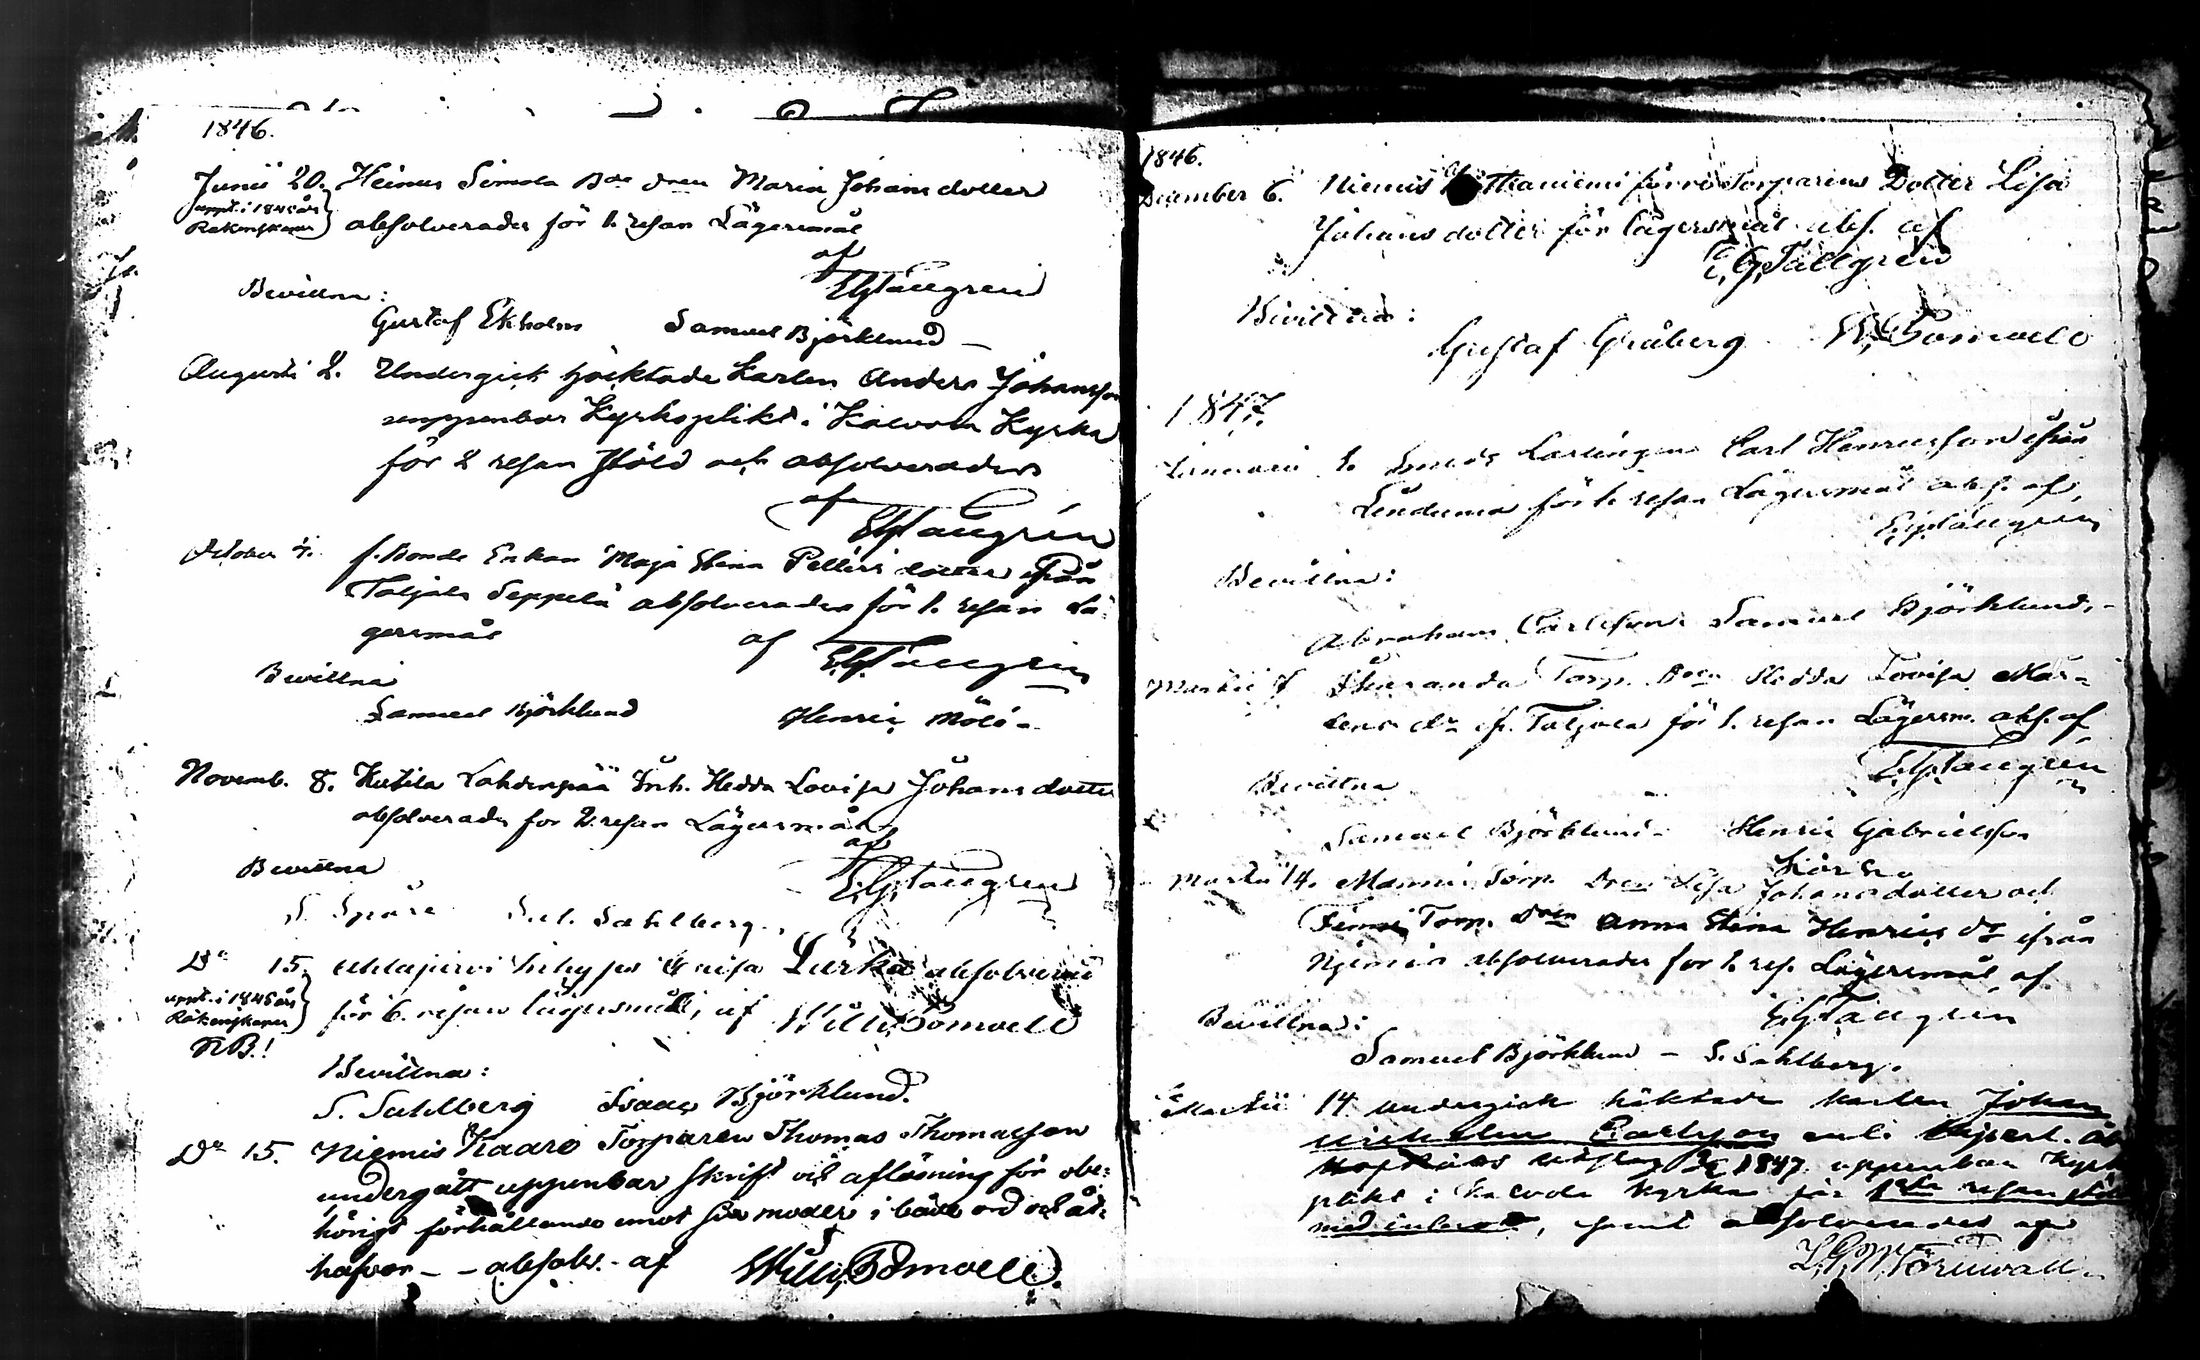 1846.
Junii 20. Heinus Simola Bde dren Maria Johansdotter
uppt. i 1845 års
Räkenskaper
absolverades för 1. resan Lägersmål
af
EGTallgrén
Bevittna:
Gustaf Ekholm Samuel Björklund
Augusti 2. Undergick häcktade Karlen Anders Johansson
uppenbar Kyrkoplikt i Kalvola Kyrka
för 2 resan stöld och absolverades
af
EGTallgrén
October 4. f. Bonde Enkan Maja Stina dotter ifrån
Taljala Seppelä absolverades för 1. resan Lä-
gersmål af EGTallgrén
Bevittna
Samuel Björklund Henric
Novemb. 8. Kutila Lahdenpää Inh. Hedda Lovisa Johansdotter
absolverades for 2. resan Lägersmål
af
E.G.Tallgrén
Bevittna
S. S. Sahlberg.
Do 15. absolverad
uppt. i 1845 års
Räkenskaper
NB.!
för 6. resan lägersmål, af Wille Bomvell
Bevittna:
S. Sahlberg Isaac Björklund.
Do 15. Niemis Kaaro Torparen Thomas Thomasson
undergått uppenbar skrift och aflösning för obe-
hörigt förhållande emot sin moder i både ord och åt-
häfvor - - absolv. - af Wille Bomvell.
1846.
December 6. Niemis förre Torparens Dotter Lisa
Johansdotter för lägersmål abs. af
E,G,Tallgrén
Bevittna:
Gustaf Gråberg W, Bomvell
1847.
Januarii 1. Smeds Lärlingen Carl Henricsson ifrån
för 1. resan Lägersmål abs. af,
E.G.Tallgrén
Bevittna:
Abraham Carlsson Samuel Björklund,
Martii 7 Torp. Dren Hedda Lovisa
dr ifr. Taljala för 1. resan Lägersm. abs. af
E.G.Tallgrén
Bevittna
Samuel Björklund Henric Gabrielsson
Martii 14. Torp. Dren Lisa Johansdotter och
Torp. Dren Anna Stina Henrics dr ifrån
absolverades for 1. res. Lägersmål, af
E,GTallgrén
Bevittna:
Samuel Björklund - S. Sahlberg.
Martii 14 undergick häktade karlen Johan
Wilhelm Carlsson enl.
utslag 1847 uppenbar Kyrk
plikt i Kalvola Kyrka för 1sta resan stöld
med inbrott, samt absolverades af
L,G,W,Törnvall.